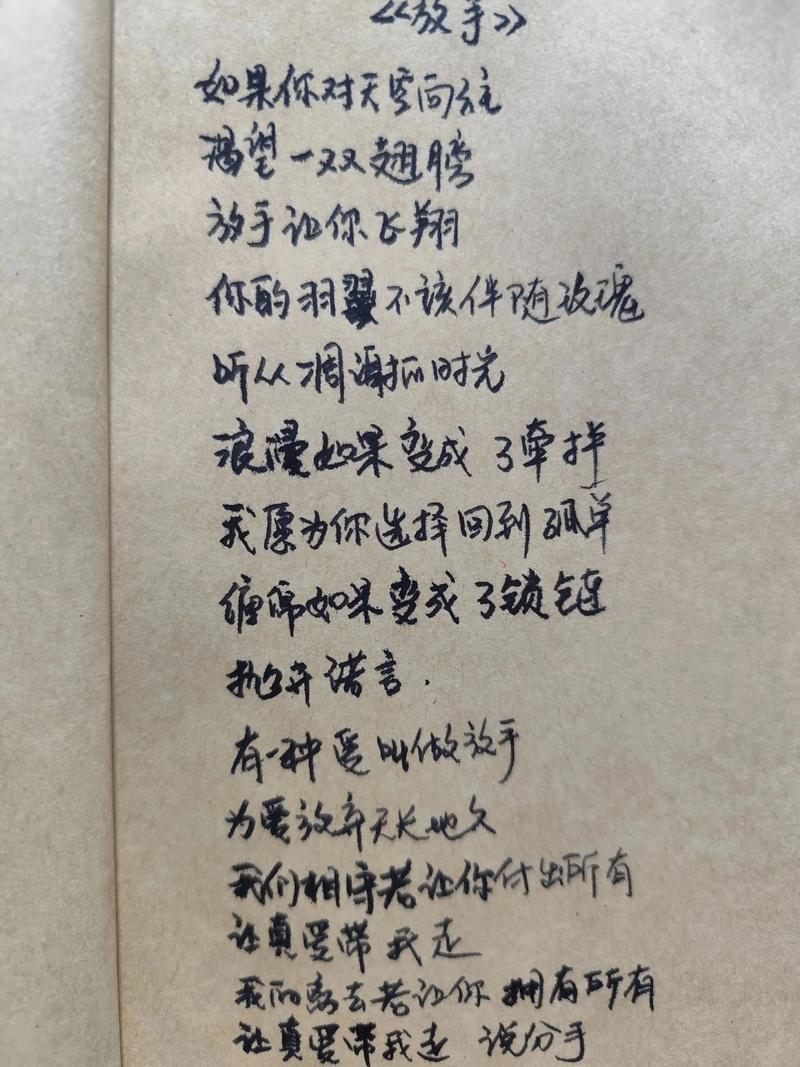 《放手》
如果你对天空向往
渴望一双翅膀
放手让你飞翔
你的羽翼不该伴随玫瑰
听从凋谢的时光
浪漫如果变成了牵绊
我愿为你选择回到孤单
缠绵如果变成了锁链
抛弃诺言.
有一种爱叫做放手
为爱放弃天长地久
我们相守若让你付出所有
让真爱带我走
我的离去若让你拥有所有
让真爱带我走 说分手